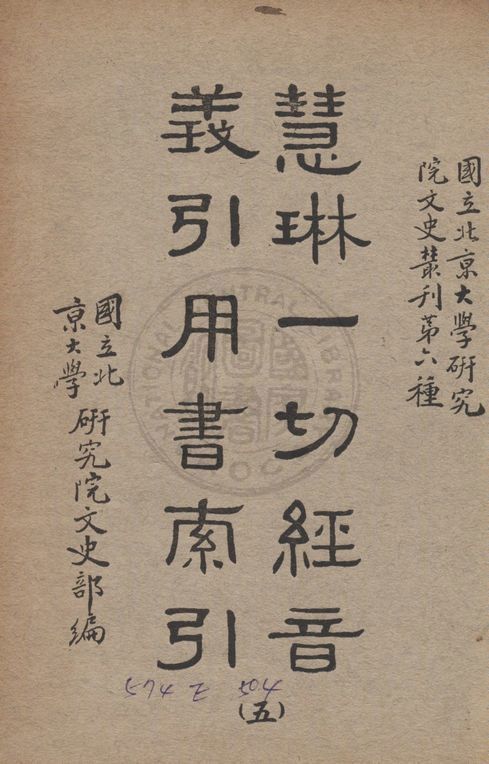 國立北京大學研究
院文史叢刊第六種
慧琳一切經音
義引用書索引
國立北
京大學
研究院文史部編
(五)
574 Z 504